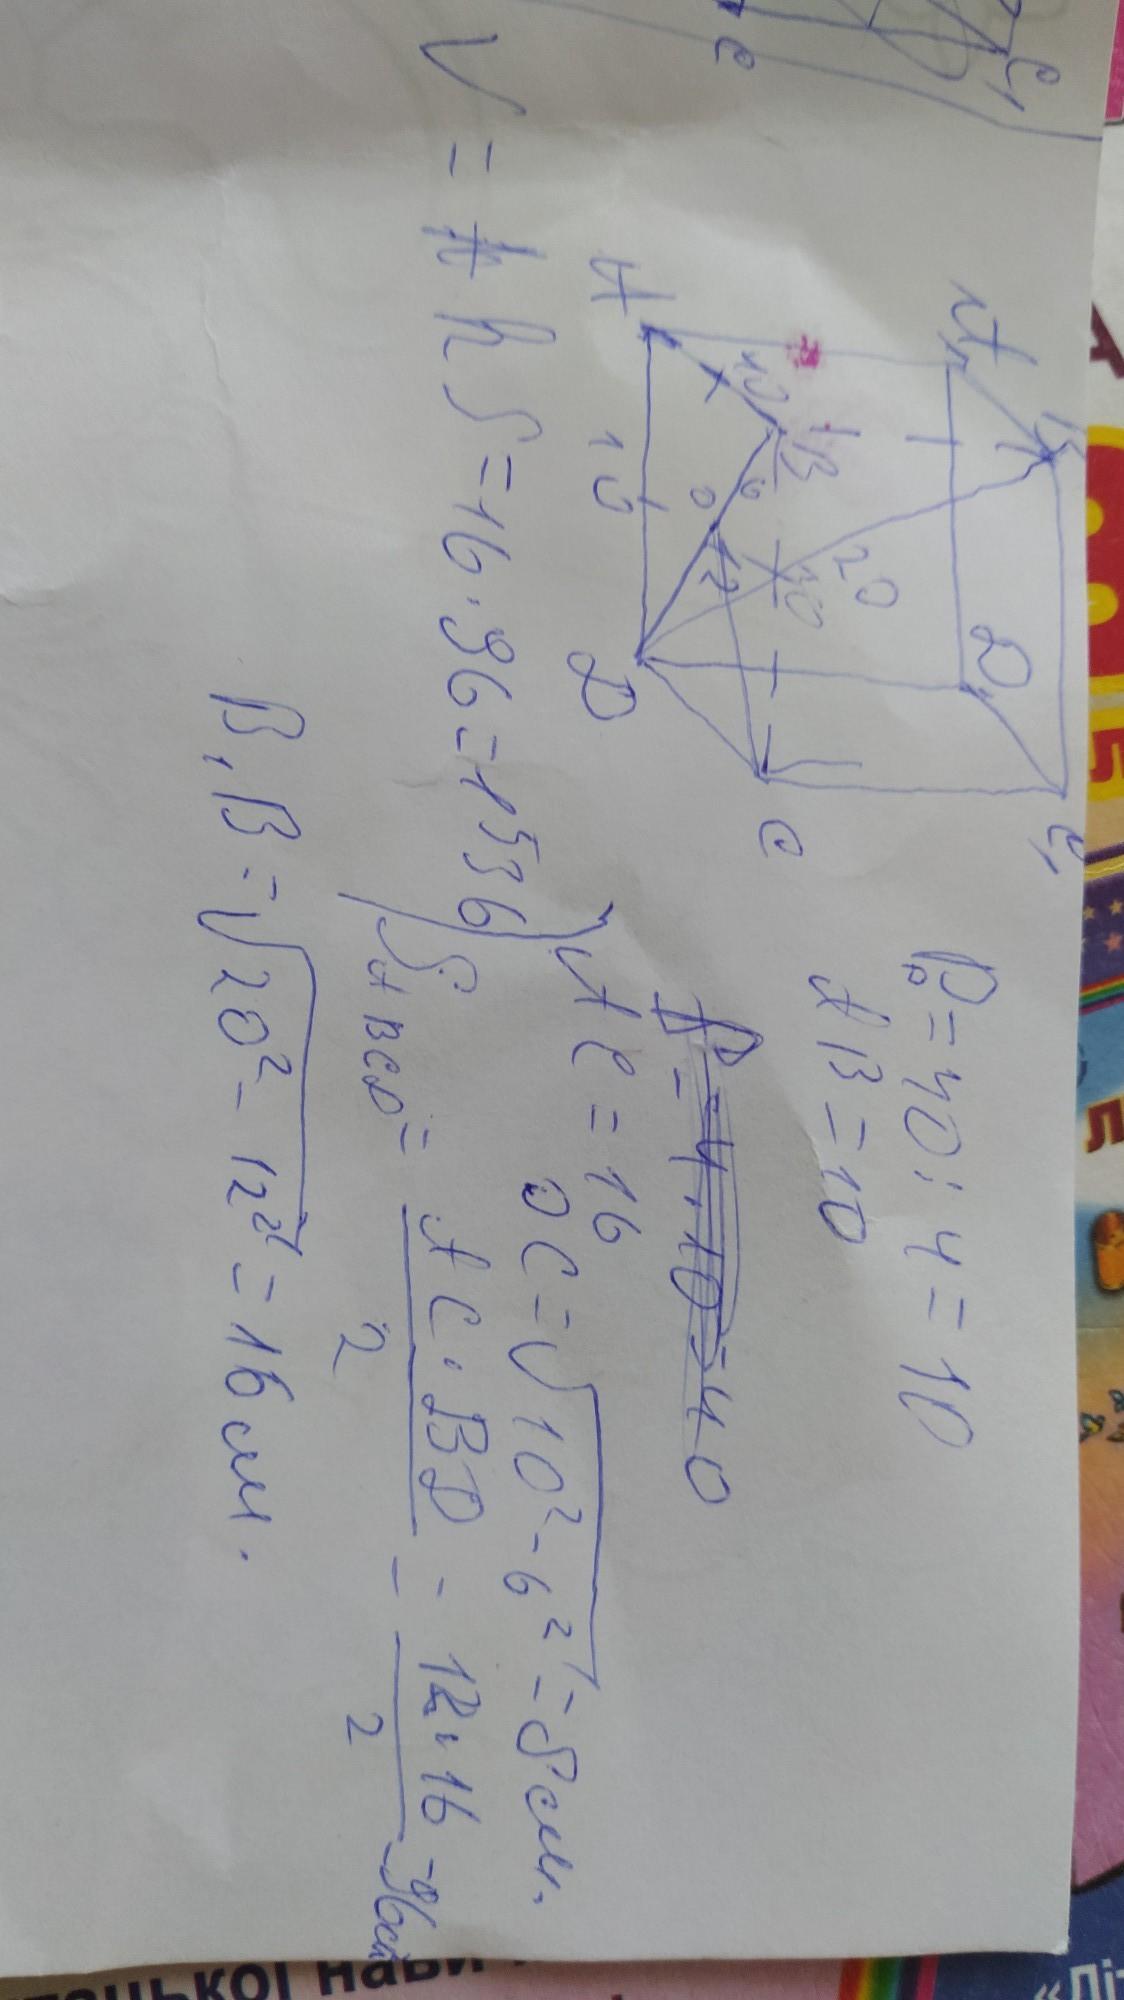 A₁
B₁
C₁
D₁
A
B
C
D
O
10
10
6
12
20
10
P₀ = 40 : 4 = 10
AB = 10
P = 4 · 10 = 40
AC = 16
OC = √10² - 6² = 8 см.
S ABCD = AC · BD / 2 = 12 · 16 / 2 = 96 см
V = h S = 16 · 96 = 1536
B₁B = √20² - 12² = 16 см.
C₁
C
А
5
Л
«Літ